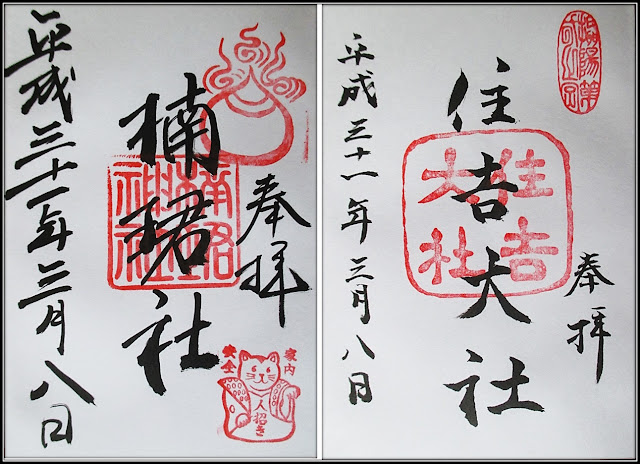 奉拝
楠珺社
平成三十一年三月八日
家内
安全
人招き
奉拝
住吉大社
住吉
大社
平成三十一年三月八日